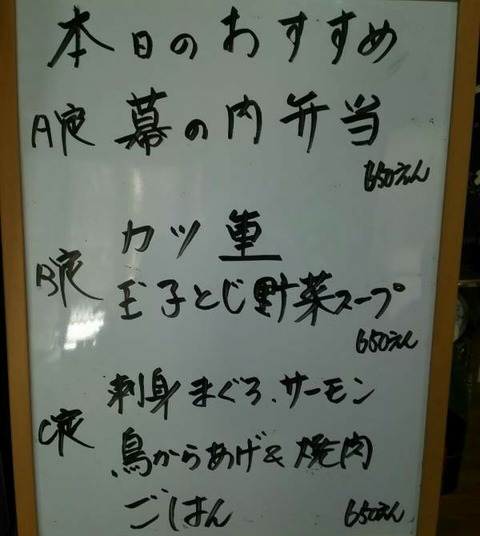 本日のおすすめ
A定 幕の内弁当
650えん
カツ重
B定 玉子とじ野菜スープ
650えん
刺身 まぐろ、サーモン
C定 鳥からあげ&焼肉
ごはん 650えん